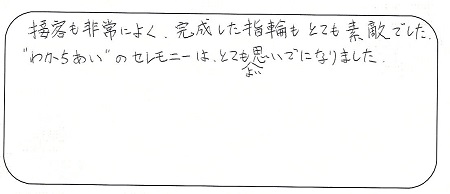 接客も非常によく、完成した指輪もとても素敵でした.
"わかちあい"のセレモニーは、とてもよい思いでになりました.